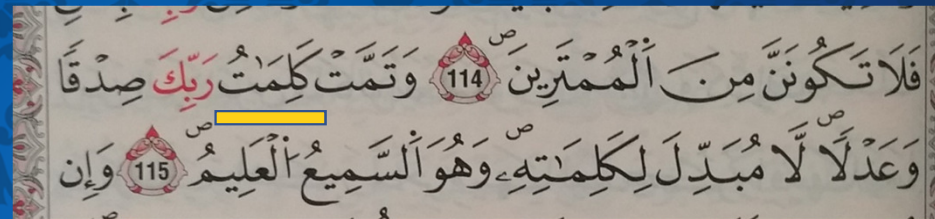 فَلَا تَكُونَنَّ مِنَ اَ۬لْمُمْتَرِينَۖ 114 وَتَمَّتْ كَلِمَٰتُ رَبِّكَ صِدْقًا
وَعَدْلًاۖ لَّا مُبَدِّلَ لِكَلِمَٰتِهِۦۖ وَهُوَ اَ۬لسَّمِيعُ اُ۬لْعَلِيمُۖ 115 وَإِن